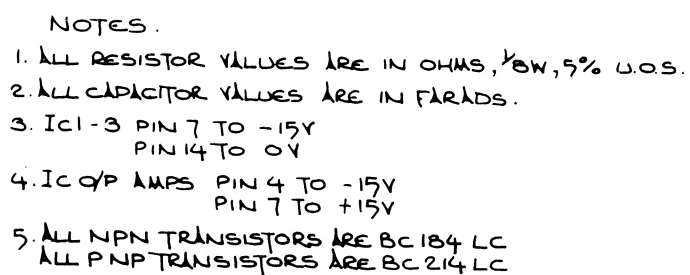 NOTES.
1. ALL RESISTOR VALUES ARE IN OHMS, 1/8W, 5% U.O.S.
2. ALL CAPACITOR VALUES ARE IN FARADS.
3. IC1-3 PIN 7 TO -15V
PIN 14 TO 0V
4. IC O/P AMPS PIN 4 TO -15V
PIN 7 TO +15V
5. ALL NPN TRANSISTORS ARE BC184 LC
ALL PNP TRANSISTORS ARE BC214 LC